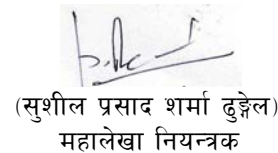 (सुशील प्रसाद शर्मा ढुङ्गेल)
महालेखा नियन्त्रक